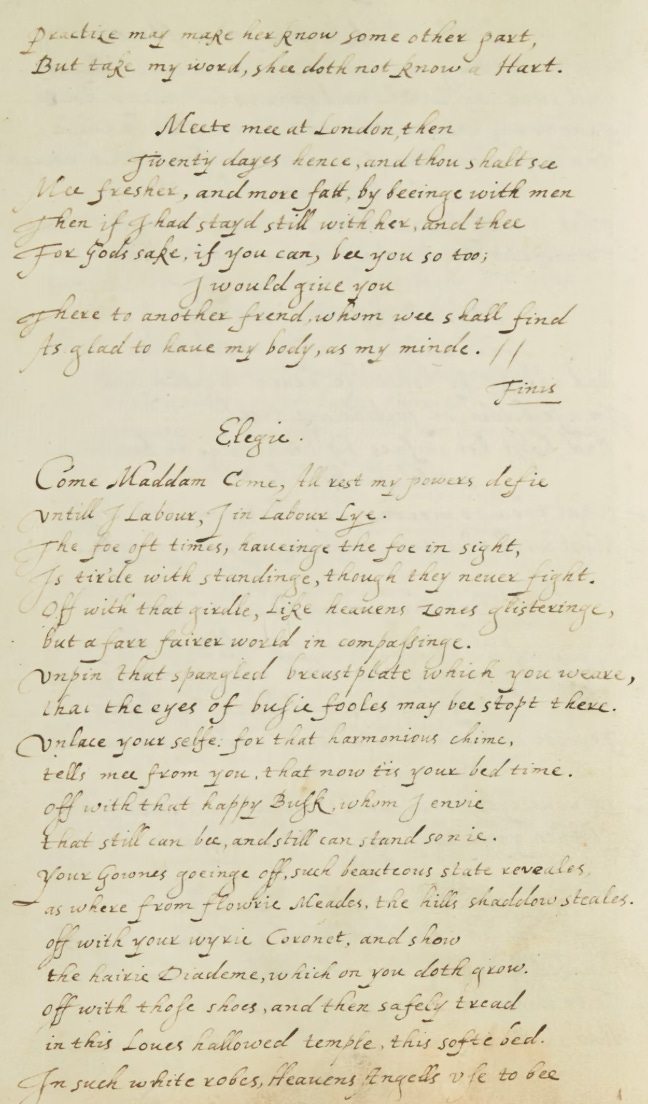 Practize may make her know some other part,
But take my word, shee doth not know a Hart.
Meete mee at London, then
Twenty dayes hence, and thou shalt see
Mee fresher, and more fatt, by beeinge with men
Then if I had stayd still with her, and thee
For Gods sake, if you can, bee you so too;
I would giue you
There to another frend, whom wee shall find
As glad to haue my body, as my minde. //
Finis
Elegie.
Come Maddam Come, All rest my powers defie
vntill I Labour, I in Labour Lye.
The foe oft times, haueinge the foe in sight,
Is tir'de with standinge, though they never fight.
Off with that girdle, Like heauens zones glisteringe,
but a farr fairer world in compassinge.
vnpin that spangled breastplate which you weare,
that the eyes of busie fooles may bee stopt there.
Vnlace your selfe: for that harmonious chime,
tells mee from you, that now tis your bed time.
off with that happy Busk, whom I envie
that still can bee, and still can stand so nie.
your Gownes goeinge off, such beauteous state reveales,
as where from flowrie Meades, the hills shaddow steales.
off with your wyrie Coronet, and show
the hairie Diademe, which on you doth grow.
off with those shoes, and then safely tread
in this Loues hallowed temple, this softe bed.
In such white robes, Heauens Angells vse to bee